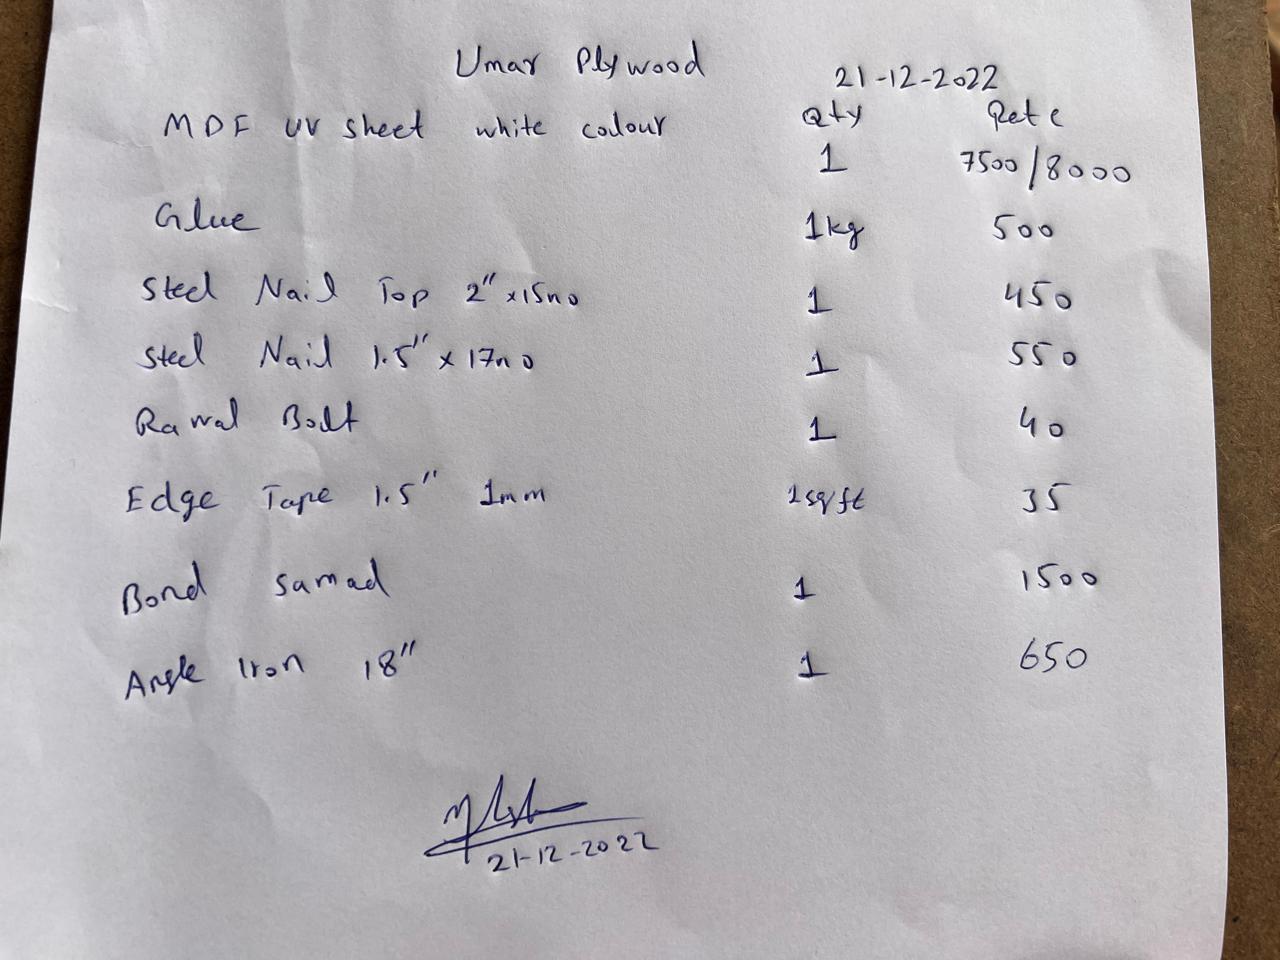 Umar Plywood
21-12-2022
Qty Rate
MDF UV Sheet white colour 1 7500/8000
Glue 1kg 500
Steel Nail Top 2" x15no 1 450
Steel Nail 1.5" x 17no 1 550
Rawal Bolt 1 40
Edge Tape 1.5" 1mm 1sq/ft 35
Bond Samad 1 1500
Angle Iron 18" 1 650
21-12-2022